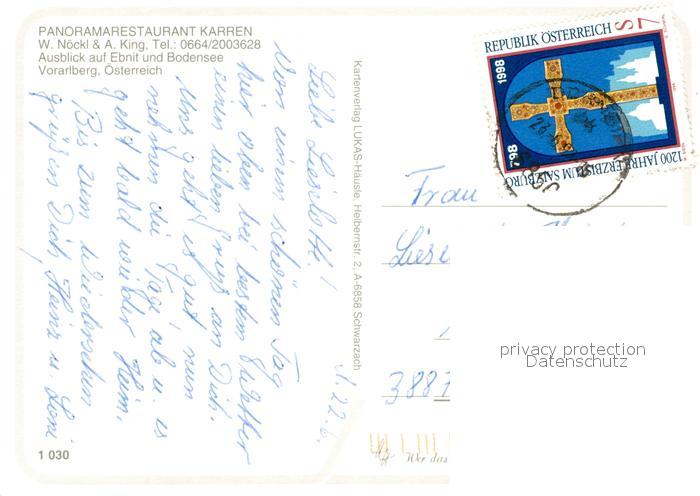 PANORAMARESTAURANT KARREN
W. Nöckl & A. King, Tel.: 0664/2003628
Ausblick auf Ebnit und Bodensee
Vorarlberg, Österreich
1 030
Kartenverlag LUKAS-Hausle, Helbernstr. 2, A-6858 Schwarzach
22.6.
Liebe Liselotte!
Von ein schönen Tag
hier oben bei bestem Wetter
einen lieben Gruß an Dich.
Uns geht es gut nun
nehmen die Tage ab u. es
geht bald wieder Heim.
Bis zum Wiedersehen
grüßen Dich Heinz u. Loni
REPUBLIK ÖSTERREICH
S 7
1998
798
1200 JAHRE ERZBISTUM SALZBURG
Frau
Liese
3887
Wer das
privacy protection
Datenschutz